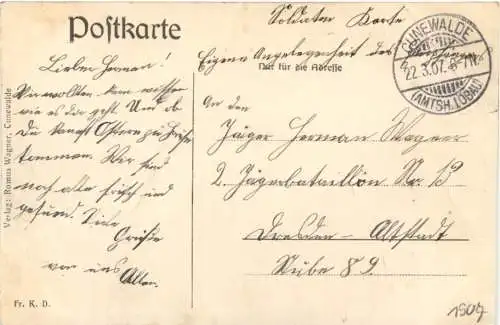 Postkarte
Soldaten Karte
Eigene Angelegenheit des
Nur für die Adresse
CUNEWALDE
22.3.07. 6-7N.
(AMTSH. LÖBAU)
Lieber Herman!
Wir wollten
wie es dir geht. Und ob
Du kannst Ostern zu
kommen. Wir sind
noch alle frisch und
gesund. Viele
Grüße
von uns
Allen.
An den
Jäger Herman Wagner
2. Jägerbataillon No. 13
Dresden - Altstadt
Stube 89.
Verlag: Romus Wagner, Cunewalde
Fr. K. D.
1907